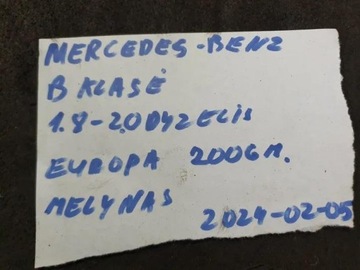 MERCEDES-BENZ
B KLASĖ
1.8-2.0DYZELIS
EUROPA 2006M.
MELYNAS
2024-02-05